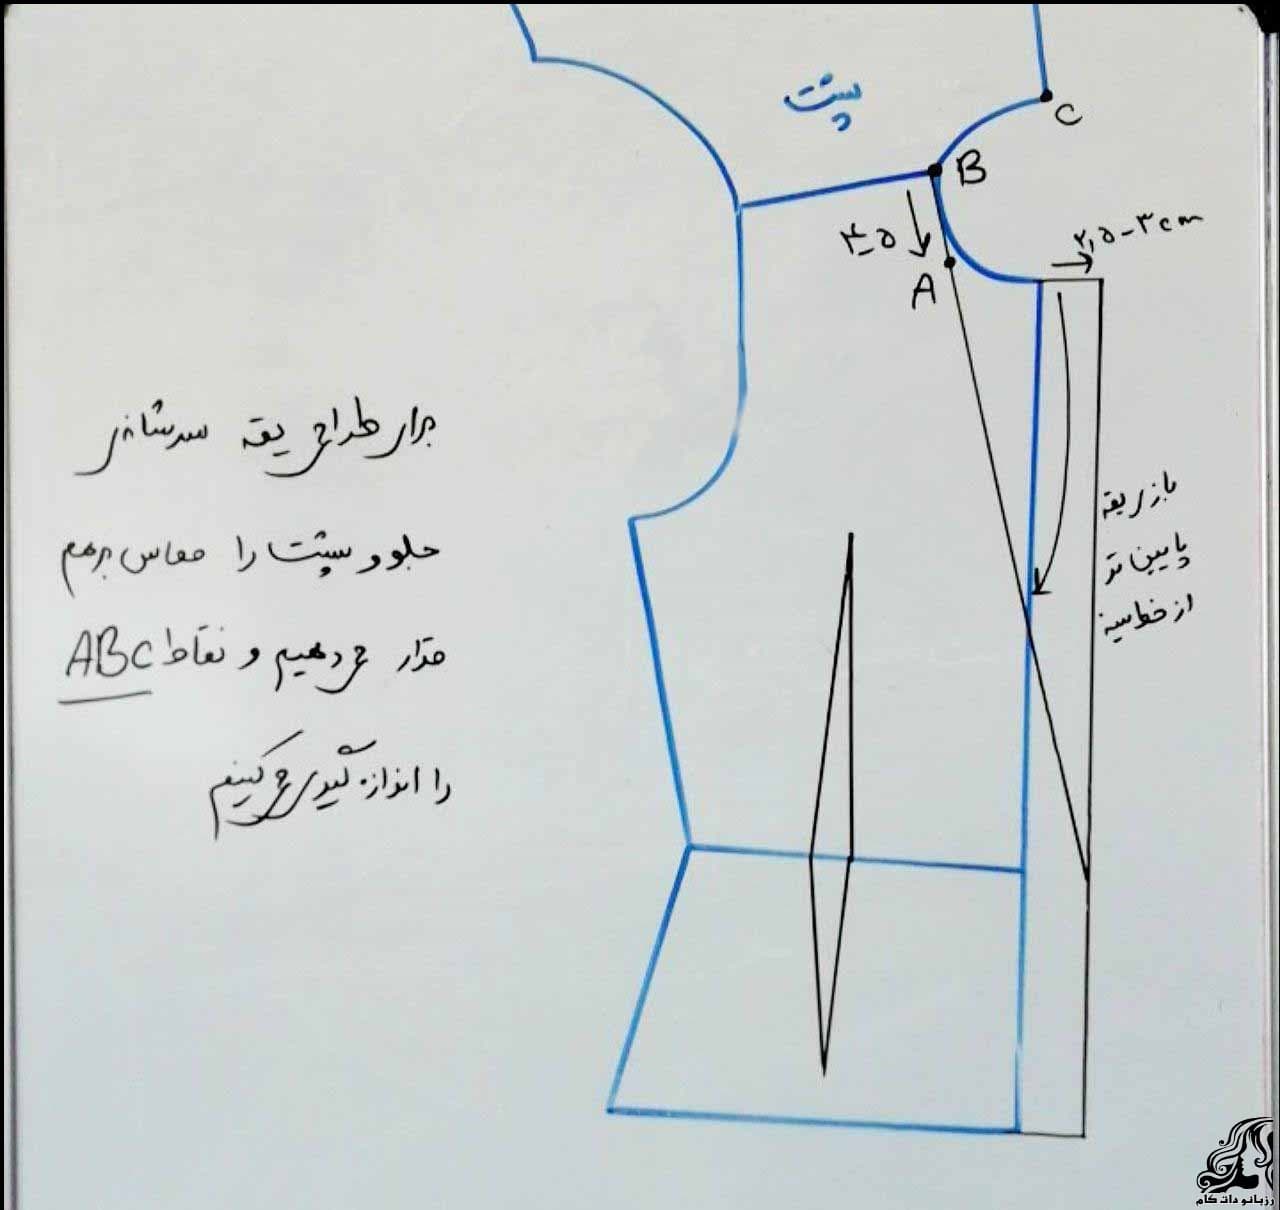 پشت
C
B
۴-۵
A
۲,۵-۳ cm
برای طراحی یقه سرشانه‌ای
جلو و پشت را مماس برهم
قرار می‌دهیم و نقاط ABC
را اندازه گیری می‌کنیم
بازی یقه
پایین تر
از خط سینه
رزبانو دات کام